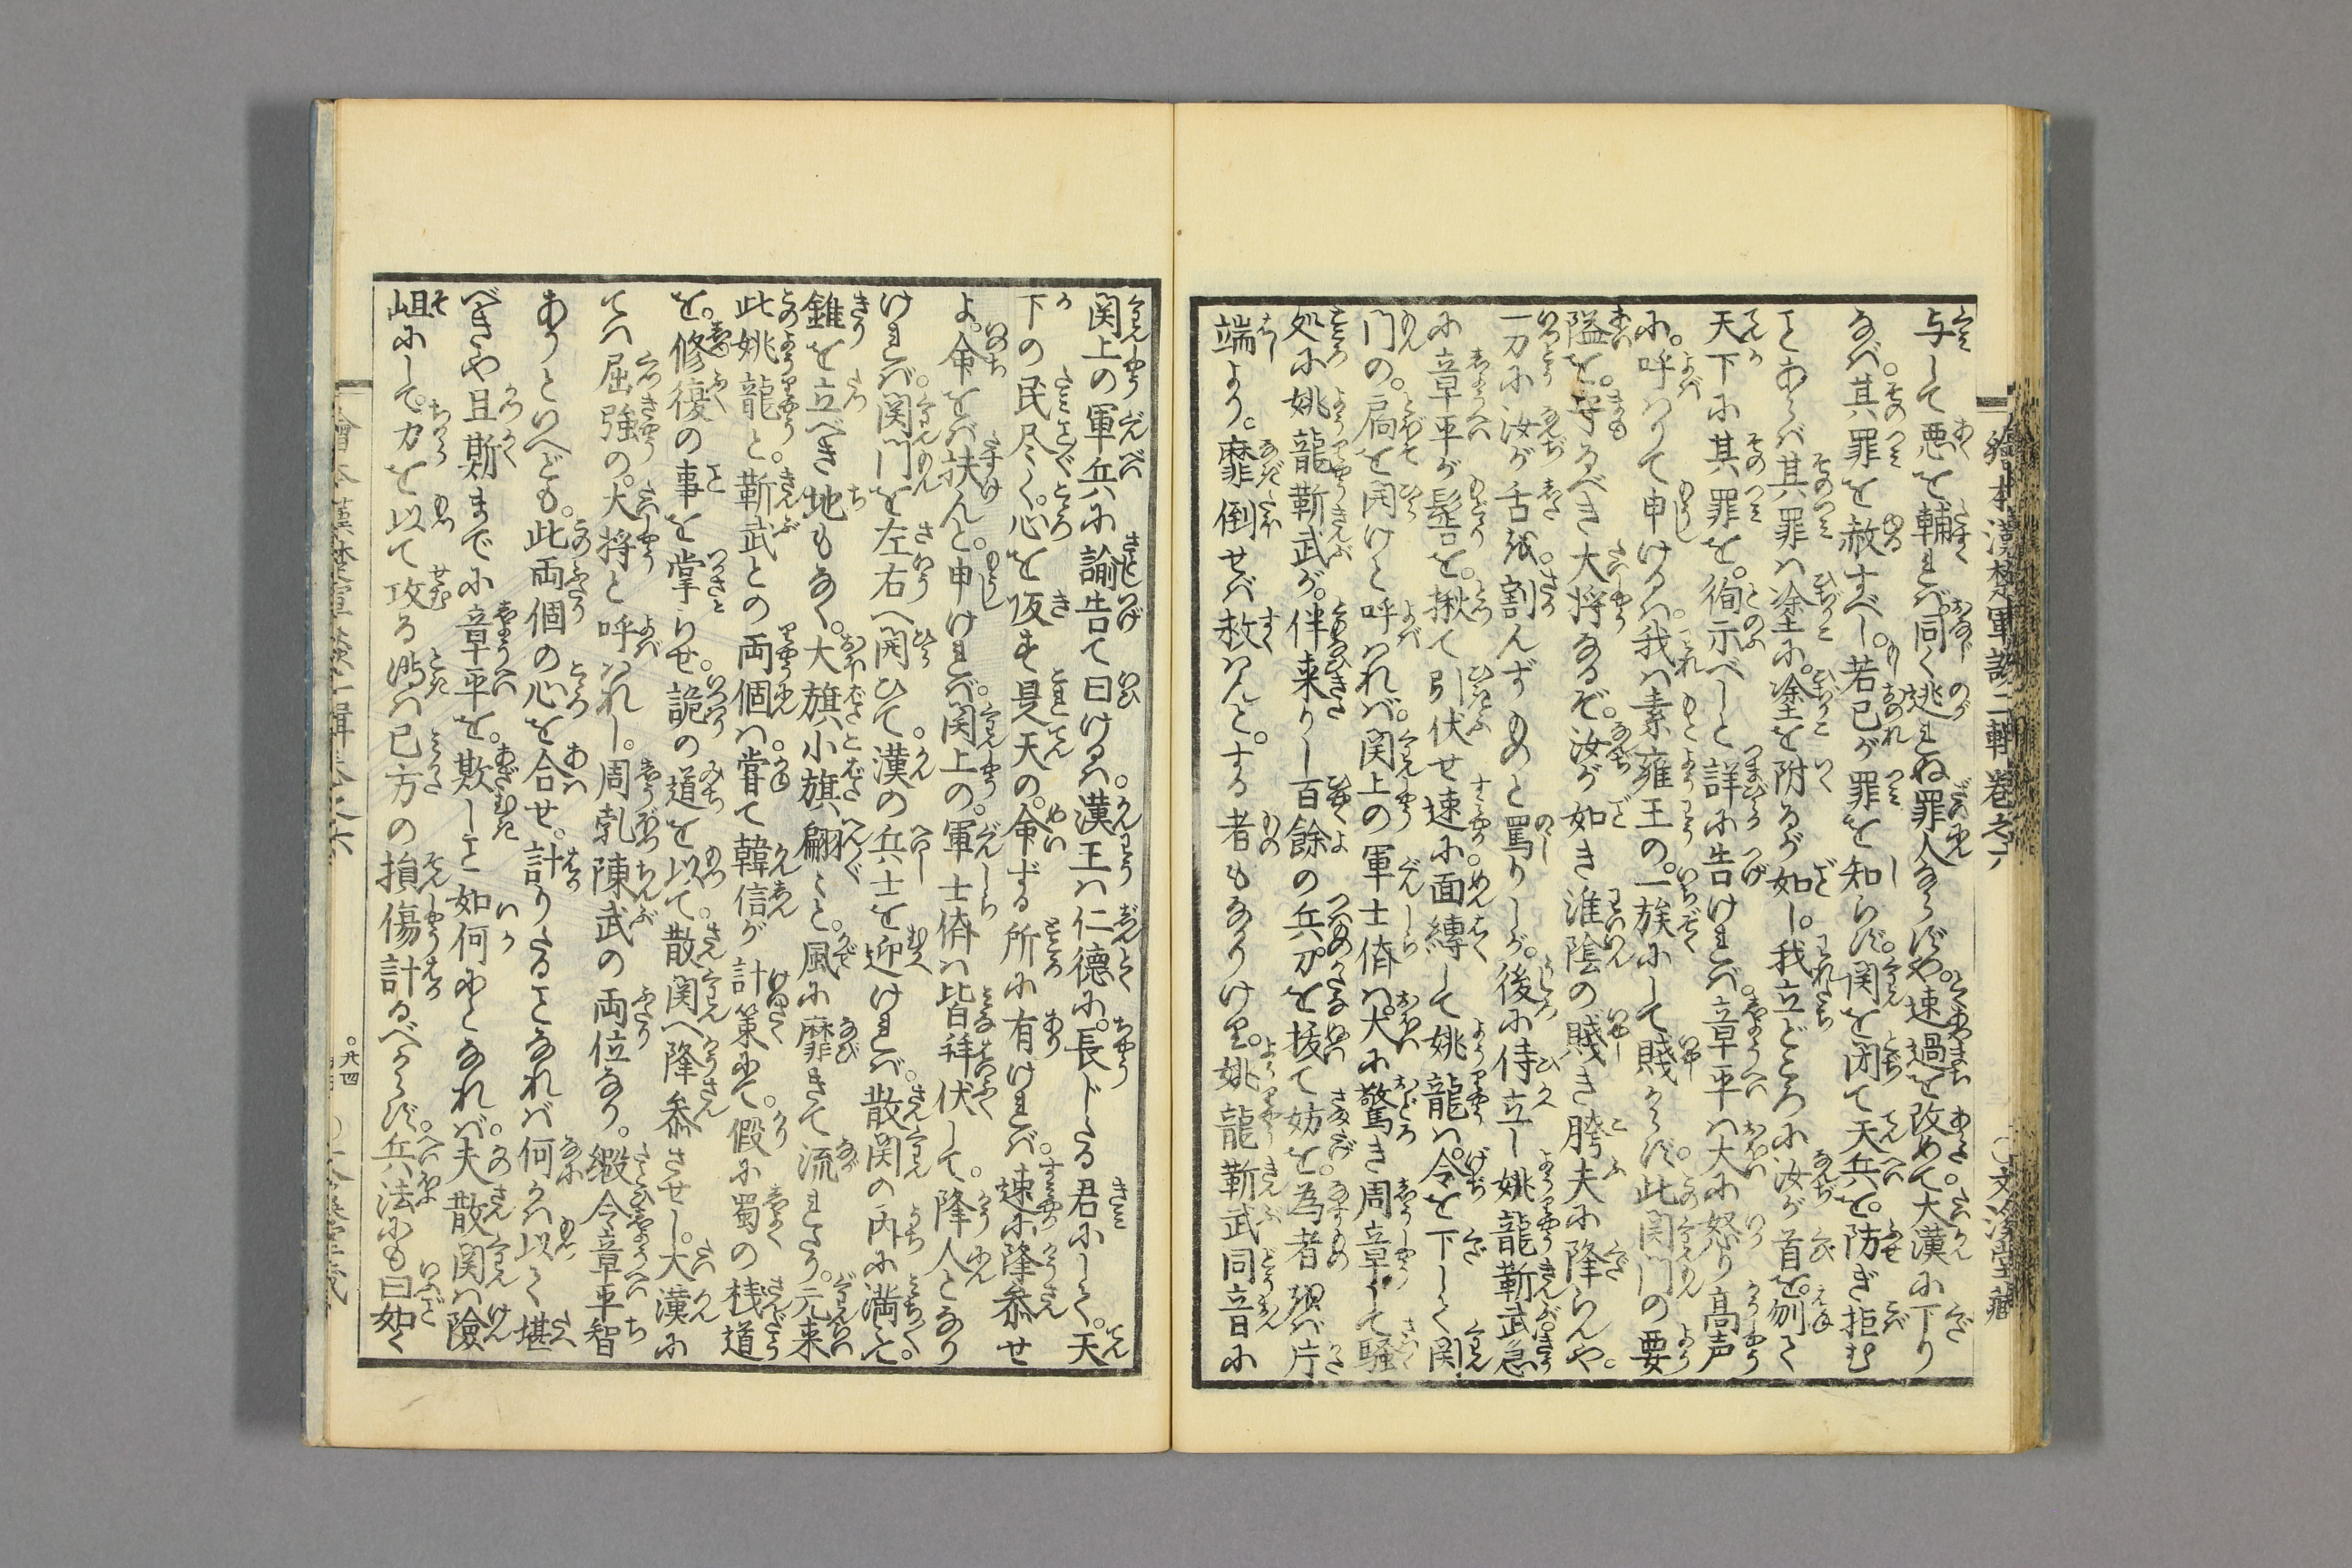 与して悪を輔れば同く逃れぬ罪人ならずや。速過を改めて大漢に下り
なば。其罪を赦すべし。若已が罪を知らず。関を閉て天兵を。防ぎ拒む
其罪は塗に。塗を附るが如し。我立どころに汝が首を。刎て
天下に其罪を。徇示べしと詳に告ければ。章平は大に怒り高声
に。呼はりて申けるは。我は素雍王の。一族にして賤からず。此関門の要
隘を。守るべき大将なるぞ。汝が如き淮陰の賤き胯夫に降らんや。
一刀に汝が舌を割んずものと罵りしが。後に侍立し姚龍靳武急
に章平が髻を。揪て引伏せ速に面縛して姚龍は。令を下して関
門の。扄を開けと呼はれば。関上の軍士儕は。大に驚き周章て騒
処に姚龍靳武が。伴来りし百餘の兵。刀を抜て妨を。為者あらば片
端より。靡倒せば救はんと。する者もなりけり。姚龍靳武同音に
繪本漢楚軍談二輯巻之六
〇文溪堂藏
関上の軍兵に諭告て曰けるは。漢王は仁德に。長じたる君にして。天
下の民尽く。心を仮す是天の。命ずる所に有ければ。速に降参せ
よ。命をば扶んと。申ければ。関上の。軍士儕は皆拝伏して。降人となり
ければ。関門を左右へ開ひて。漢の兵士を迎ければ。散関の内に満て。
錐を立べき地もなく。大旗小旗翩々と。風に靡きて流れたり。元来
此姚龍と。靳武との両個は。嘗て韓信が計策にて。假に蜀の桟道
を。修復の事を掌らせ。詭の道を以て。散関へ降参させし。大漢に
てへ屈強の。大将と呼はれし。周勃陳武の両位なり。縦令章平智
ありといへども。此両個の心を合せ。計りたることなれば何かは以て堪
べきや且斯までに章平を。欺しこと如何にとなれば。夫散関は險
岨にして。力を以て攻る時は已方の損傷計るべからず。兵法にも曰如く
〇廿四